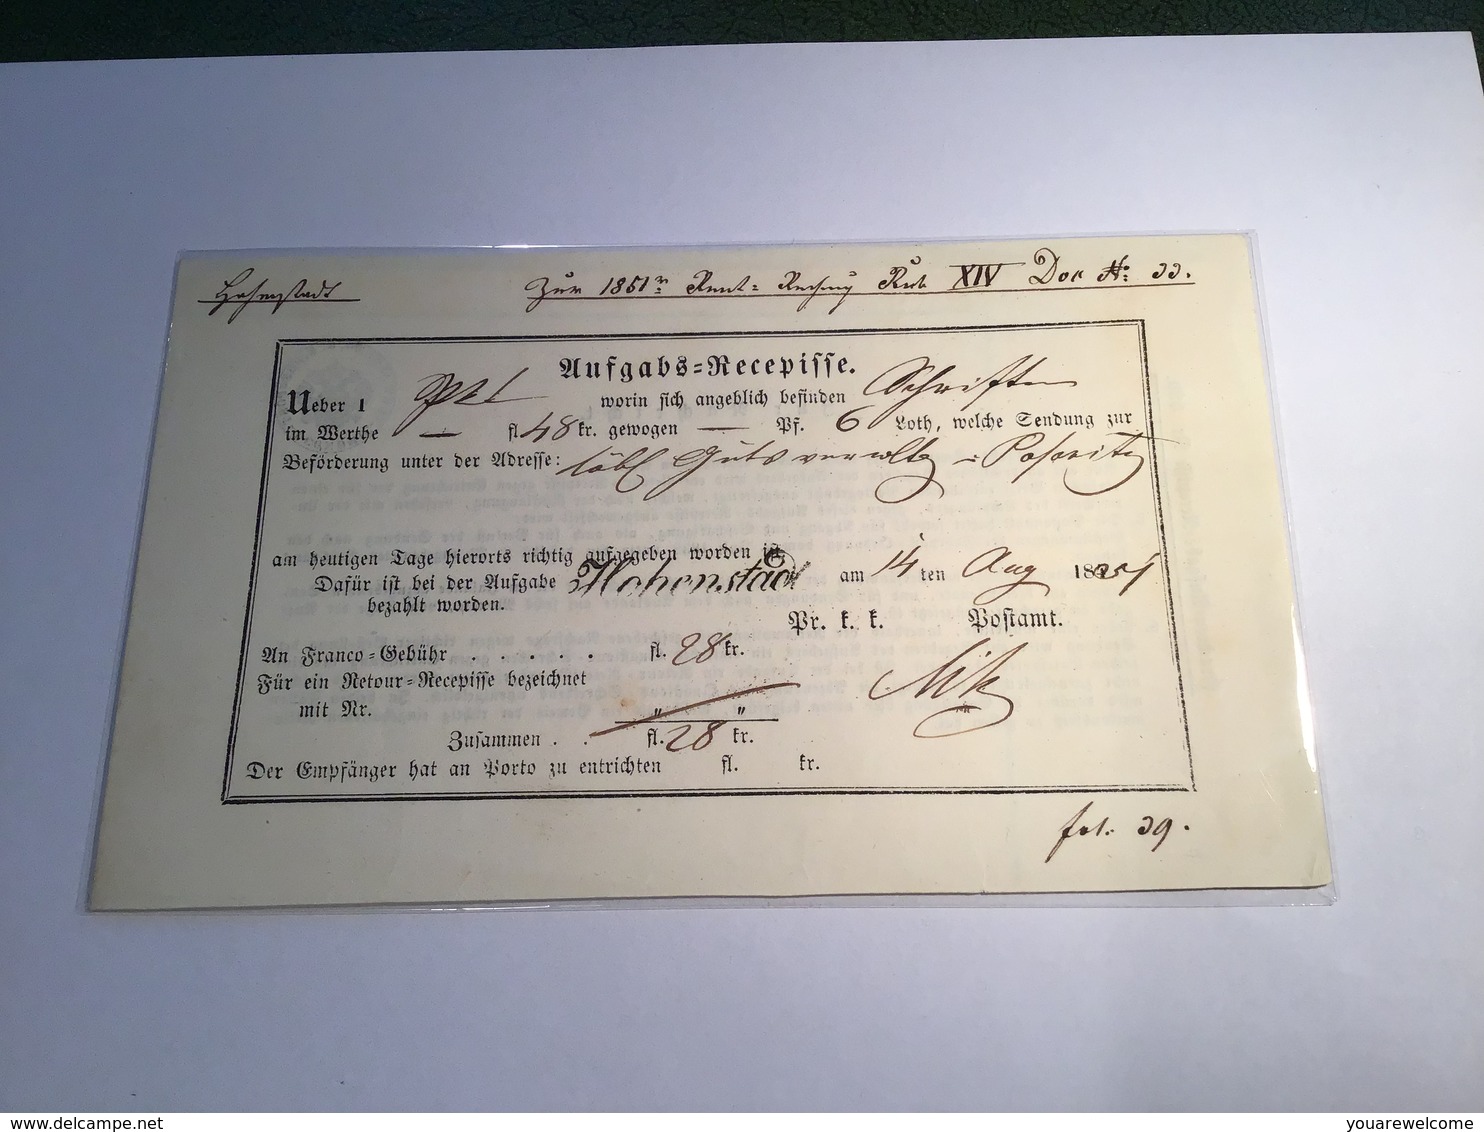 Hohenstadt
Zur 1851r Rent= Rechnung Rub XIV Doc No: 33.
Aufgabs=Recepisse.
Ueber 1 worin sich angeblich befinden Schriften
im Werthe — fl. 48 kr. gewogen — Pf. 6 Loth, welche Sendung zur
Beförderung unter der Adresse: löbl Gutsverwaltg
am heutigen Tage hierorts richtig aufgegeben worden ist.
Dafür ist bei der Aufgabe Hohenstadt am 14 ten Aug 1851
bezahlt worden.
Pr. k. k. Postamt.
An Franco=Gebühr . . . . . fl. 28 kr.
Für ein Retour=Recepisse bezeichnet
mit Nr. " "
Zusammen . . fl. 28 kr.
Der Empfänger hat an Porto zu entrichten fl. kr.
fol. 39.
delcampe.net
youarewelcome